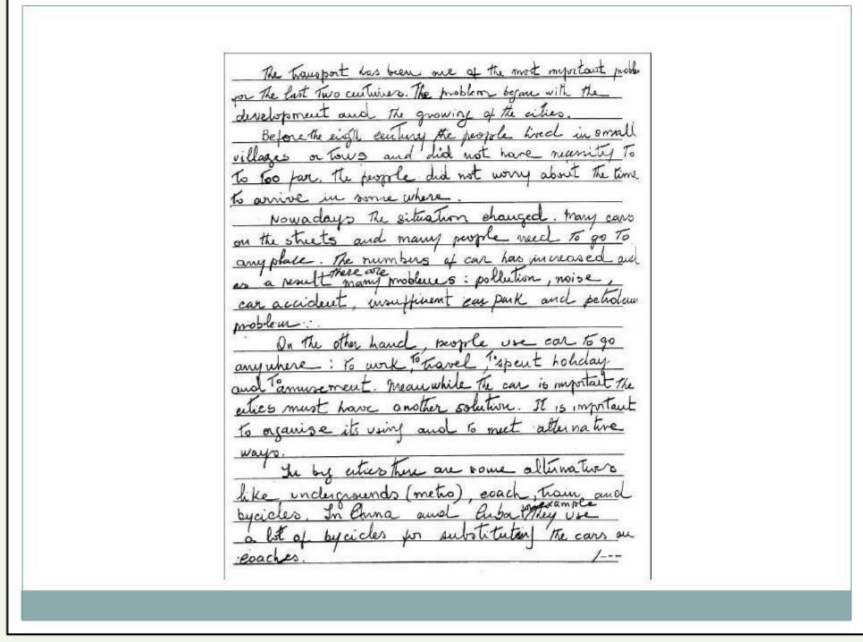 The transport has been one of the most important proble
for the last two centuries. The problem began with the
development and the growing of the cities.
Before the eigth century the people lived in small
villages or tows and did not have necessity to
to too far. The people did not worry about the time
to arrive in some where.
Nowadays the situation changed. Many cars
on the streets and many people need to go to
any place. The numbers of car has increased and
as a result there are many problems : pollution, noise,
car accident, insufficient car park and petroleum
problem.
On the other hand, people use car to go
anywhere : to work, to travel, to spent holiday
and to amusement. Meanwhile the car is important the
cities must have another solution. It is important
to organise its using and to meet alternative
ways.
In big cities there are some alternatives
like undergrounds (metro), coach, tram and
bycicles. In China and Cuba for example they use
a lot of bycicles for substituting the cars or
coaches. /---